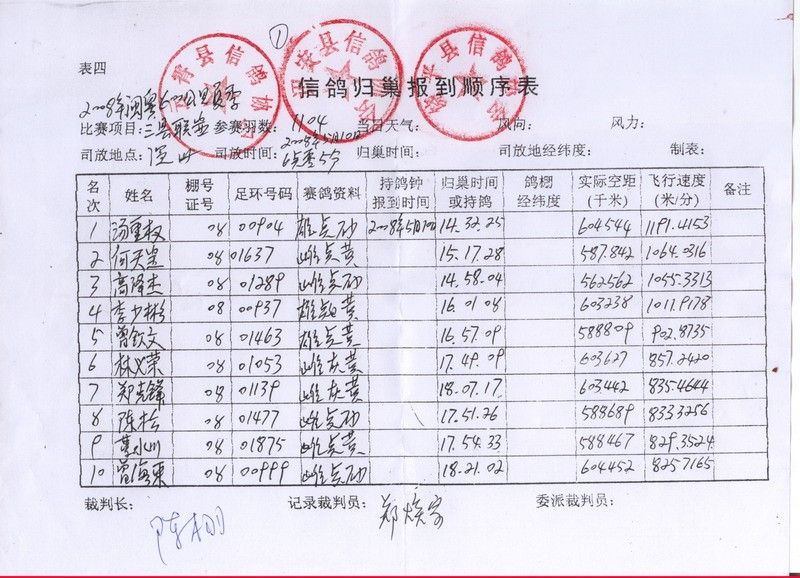 ①
表四
信鸽归巢报到顺序表
比赛项目: 三县联赛 参赛羽数: 1104 当日天气: 风向: 风力:
司放地点: 司放时间: 2008年5月10日 归巢时间: 司放地经纬度: 制表:
名次 姓名 棚号证号 足环号码 赛鸽资料 持鸽钟报到时间 归巢时间或持鸽 鸽棚经纬度 实际空距(千米) 飞行速度(米/分) 备注
1 汤重权 08 00904 雄 砂 14.32.25 604544 1191.4153
2 08 01637 雌 黄 15.17.28 587.842 1064.0316
3 高泽杰 08 01289 雌 砂 14.58.04 562562 1055.3313
4 李少彬 08 00937 雄 黄 16.01.08 603238 1011.9178
5 曾钦文 08 01463 雄 黄 16.57.09 588809 902.8735
6 林义荣 08 01053 雌灰黄 17.49.09 603627 857.2420
7 郑吉锋 08 01139 雌灰黄 18.07.17 603442 835.4644
8 陈松 08 01477 雌 砂 17.51.26 588689 833.3256
9 08 01875 雌 黄 17.54.33 588467 829.3524
10 曾海东 08 00999 雌 砂 18.21.02 604452 825.7165
裁判长: 记录裁判员: 委派裁判员: